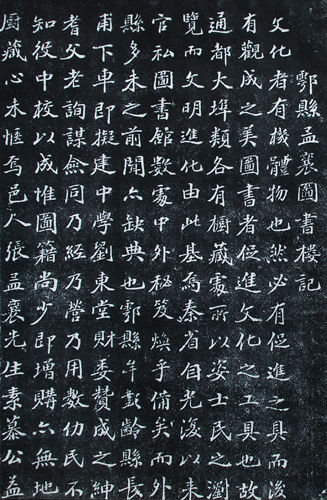 鄠縣孟襄圖書楼記
文化者有機體物也然必有促進之具而後
有觀成之美圖書者促進文化之工具也故
通都大埠類各有櫥藏處所以姿士民之瀏
覽而文明進化由此基焉秦省自光復以来
官私圖書館數處中外秘笈煥乎備矣而外
縣多未之前聞亦缺典也鄠縣齡縣長
甫下車即擬建中學劉東堂財委贊成之紳
耆父老詢謀僉同乃經乃營乃用數仂民不
知役中校以成惟圖籍尚少即增購亦無地
廚藏心未愜焉邑人張孟襄先生素慕公益